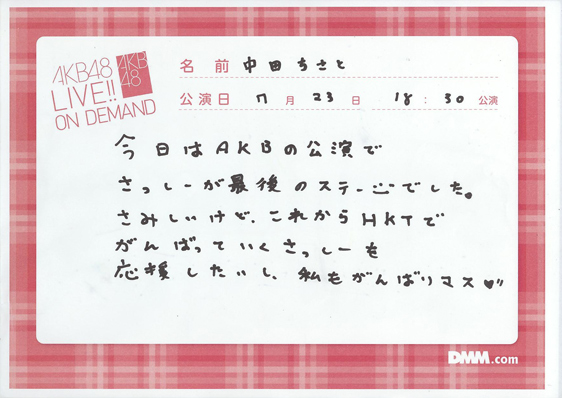 AKB48
LIVE!!
ON DEMAND
AKB
48
名前 中田ちさと
公演日 7月23日 18:30公演
今日はAKBの公演で
さっしーが最後のステージでした。
さみしいけど、これからHKTで
がんばっていくさっしーを
応援したいし、私もがんばりマス♥"
DMM.com